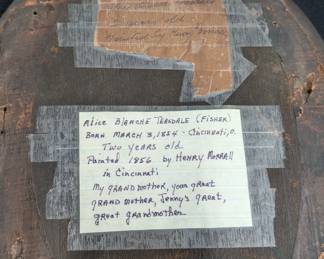 years old
Painted by Henry
Alice Blanche Teasdale (Fisher)
Born March 3, 1854 - Cincinnati, O.
Two years old
Painted 1856 by Henry Morrall
in Cincinnati
My grandmother, your great
grand mother, Jenny's great,
great grandmother